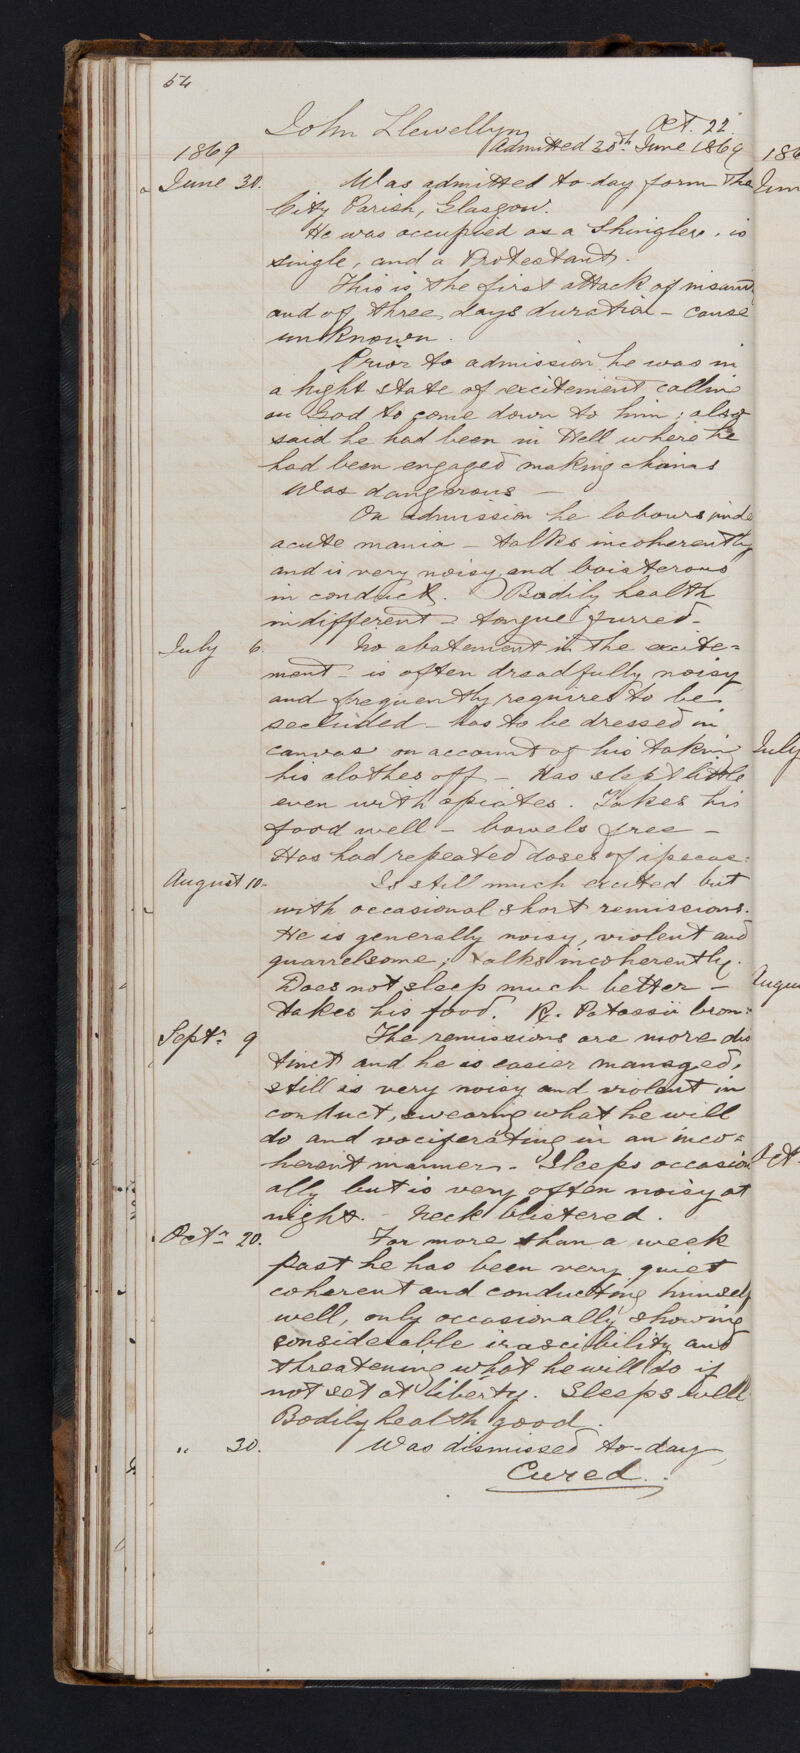 54
John Llewellyn Oct. 22
1869 Admitted 30th June 1869 186
June 30. Was admitted to-day form the Jun
City Parish, Glasgow.
He was occupied as a Shingler. is
single, and a Protestant.
This is the first attack of insanit
and of three days duration – cause
unknown.
Prior to admission he was in
a hight state of excitement callin
on God to come down to him; also
said he had been in Hell where he
had been engaged making chains
Was dangerous –
On admission he labours unde
acute mania – talks incoherently
and is very noisy and boisterous
in conduct. Bodily health
indifferent – tongue furred –
July 6. No abatement in the excite=
ment – is often dreadfully noisy
and frequently requires to be
secluded – has to be dressed in
canvas on account of his takin July
his clothes off – Has slept little
even with opiates. Takes his
food well – bowels free –
Has had repeated doses of ipecac:
August 10. Is still much excited but
with occasional short remissions.
He is generally noisy, violent and
quarrelsome; talks incoherently.
Does not sleep much better – Augu
takes his food. R. Potassii brom:
Septr. 9 The remissions are more dis
tinct and he is easier managed,
still is very noisy and violent in
conduct, swearing what he will
do and vociferating in an inco=
herent manner. Sleeps occasion Oct.
ally but is very often noisy at
night. – Neck blistered.
Octr. 20. For more than a week
past he has been very quiet
coherent and conducting himself
well, only occasionally showing
considerable irascibility and
threatening what he will do if
not set at liberty. Sleeps well
Bodily health good.
" 30. Was dismissed to-day
Cured.